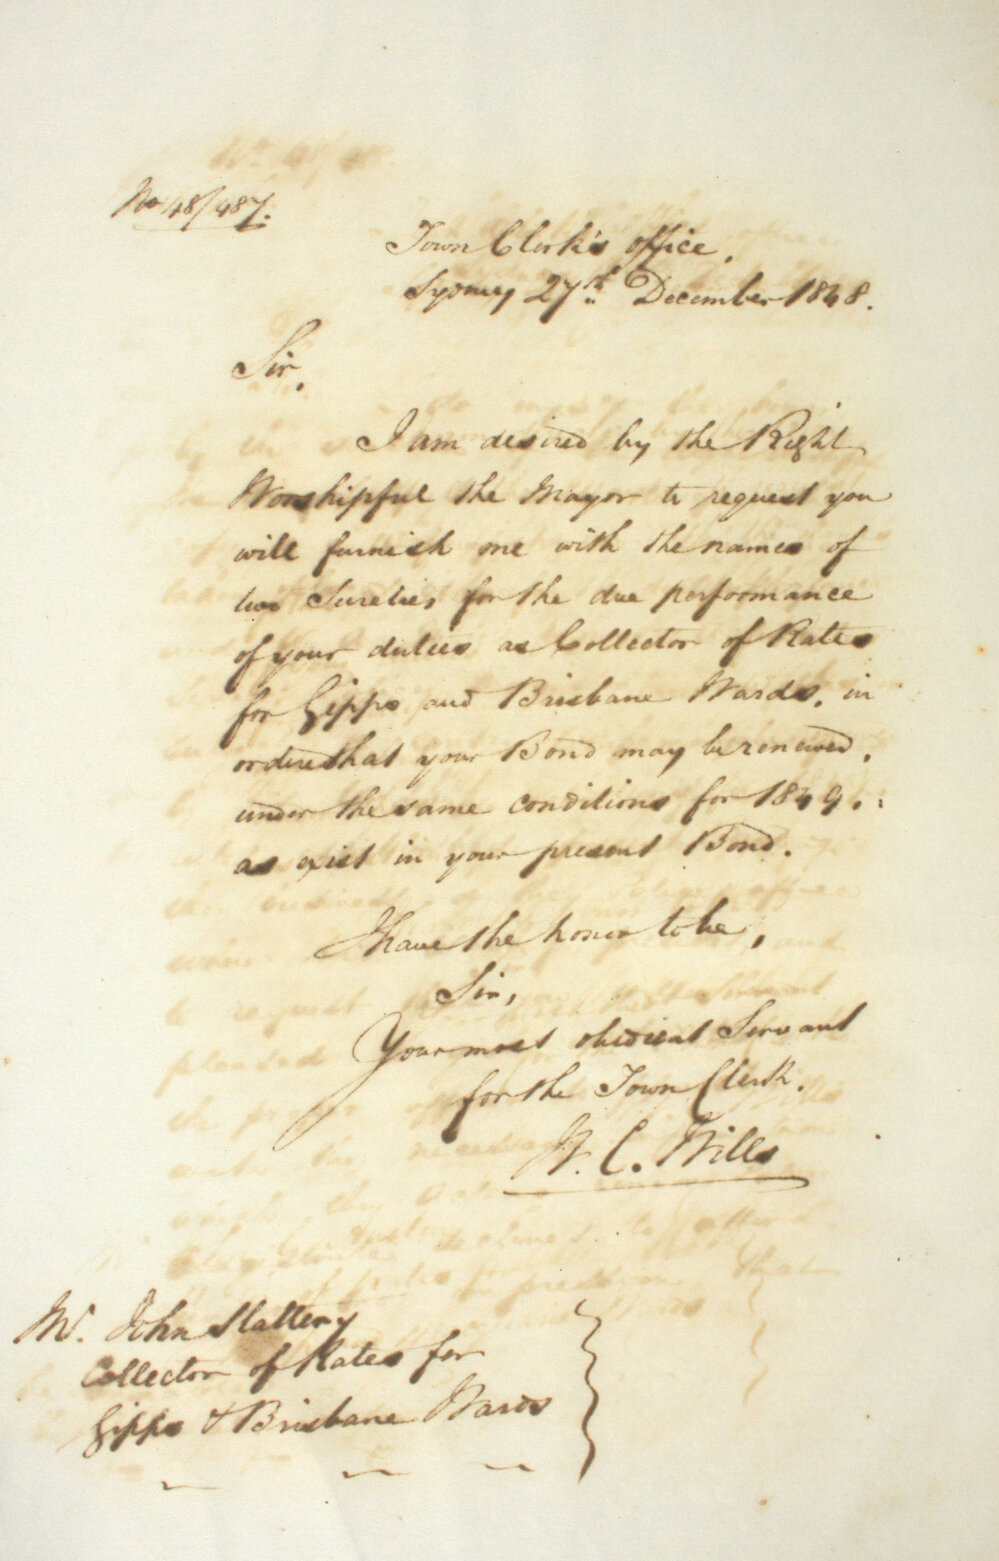 No 48/487.
Town Clerk's office,
Sydney 27th December 1848.
Sir,
I am desired by the Right
Worshipful the Mayor to request you
will furnish me with the names of
two Sureties for the due performance
of your duties as Collector of Rates
for Gipps and Brisbane Wards, in
order that your Bond may be renewed,
under the same conditions for 1849,
as exist in your present Bond.
I have the honor to be,
Sir,
Your most obedient Servant
for the Town Clerk.
W. C. Wills
Mr. John Slattery
Collector of Rates for
Gipps & Brisbane Wards